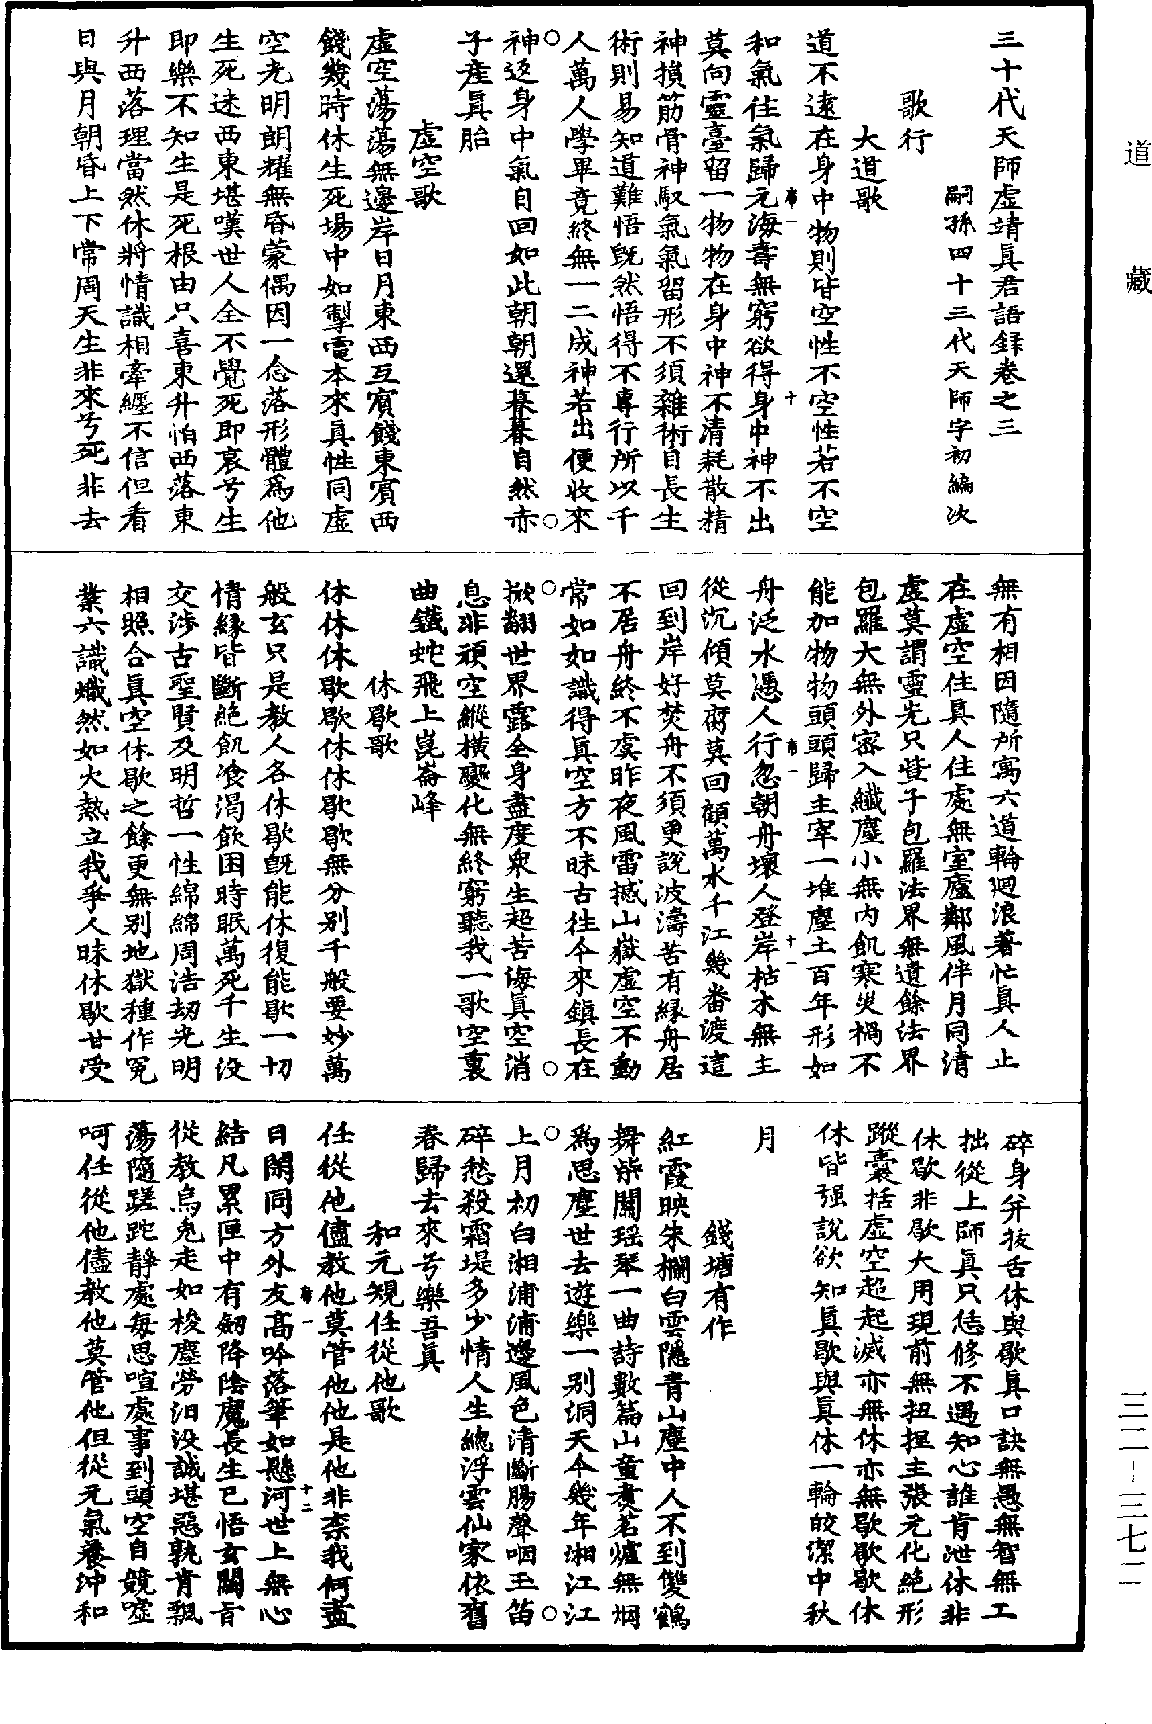 道藏
三二—三七二
三十代天師虛靖眞君語錄卷之三
嗣孫四十三代天師宇初編次
歌行
大道歌
道不遠在身中物則皆空性不空性若不空
和氣住氣歸元海壽無窮欲得身中神不出
莫向靈臺留一物物在身中神不清耗散精
神損筋骨神馭氣氣留形不須雜術自長生
術則易知道難悟旣然悟得不專行所以千
人萬人學畢竟終無一二成神若出便收來
神返身中氣自回如此朝朝還暮暮自然赤
子產眞胎
虛空歌
虛空蕩蕩無邊岸日月東西互賓餞東賓西
餞幾時休生死場中如掣電本來眞性同虛
空光明朗耀無昏蒙偶因一念落形體爲他
生死迷西東堪嘆世人全不覺死即哀兮生
即樂不知生是死根由只喜東升怕西落東
升西落理當然休將情識相牽纏不信但看
日與月朝昏上下常周天生非來兮死非去
無有相因隨所寓六道輪迴浪著忙眞人止
在虛空住眞人住處無室廬鄰風伴月同清
虛莫謂靈光只些子包羅法界無遺餘法界
包羅大無外密入纖塵小無内飢寒災禍不
能加物物頭頭歸主宰一堆塵土百年形如
舟泛水憑人行忽朝舟壞人登岸枯木無主
從沉傾莫腐莫回顧萬水千江幾番渡這
回到岸好焚舟不須更說波濤苦有緣舟居
不居舟終不虞昨夜風雷撼山嶽虛空不動
常如如識得眞空方不昧古往今來鎮長在
掀翻世界露全身盡度衆生超苦海眞空消
息非頑空縱橫變化無終窮聽我一歌空裏
曲鐵蛇飛上崑崙峰
休歇歌
休休休歇歇休休歇歇無分别千般要妙萬
般玄只是教人各休歇旣能休復能歇一切
情緣皆斷絕飢飡渴飲困時眠萬死千生没
交涉古聖賢及明哲一性綿綿周浩劫光明
相照合眞空休歇之餘更無别地獄種作冤
業六識熾然如火熱立我爭人昧休歇甘受
碎身并拔舌休與歇眞口訣無愚無智無工
拙從上師眞只恁修不遇知心誰肯泄休非
休歇非歇大用現前無扭捏主張元化絕形
蹤囊括虛空超起滅亦無休亦無歇歇歇休
休皆强說欲知眞歇與眞休一輪皎潔中秋
月
錢塘有作
紅霞映朱欄白雲隱青山塵中人不到雙鶴
舞柴關瑶琴一曲詩數篇山童煑茗爐無烟
爲思塵世去遊樂一别洞天今幾年湘江江
上月初白湘浦浦邊風色清斷腸聲咽玉笛
碎愁殺霜堤多少情人生總浮雲仙家依舊
春歸去來兮樂吾眞
和元規任從他歌
任從他儘教他莫管他他是他非柰我何盡
日閑同方外友高吟落筆如懸河世上無心
結凡累匣中有劒降陰魔長生已悟玄關旨
從教烏兎走如梭塵勞汩没誠堪惡孰肯飄
蕩隨蹉跎靜處每思喧處事到頭空自競噓
呵任從他儘教他莫管他但從元氣養沖和